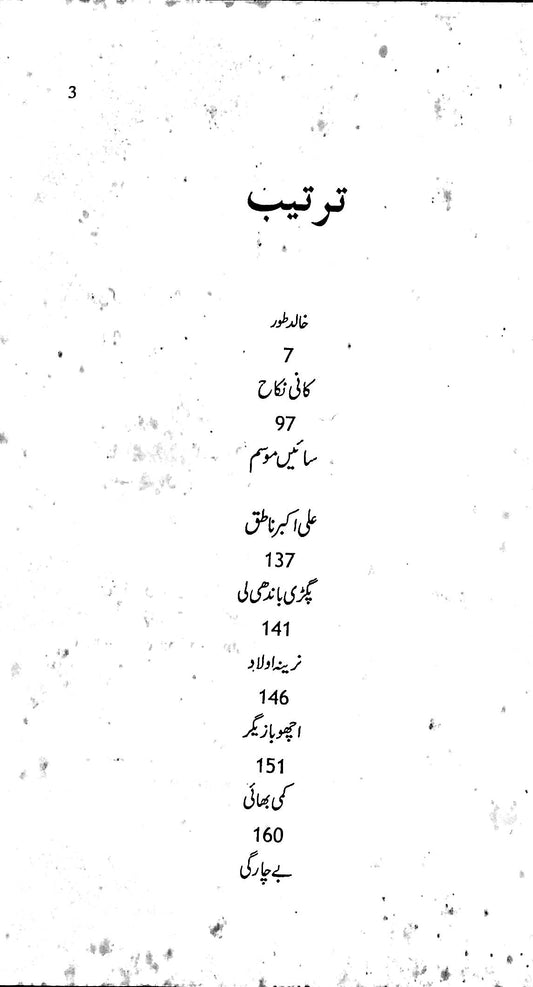 3
ترتیب
خالد طور
7
کانی نکاح
97
سائیں موسم
علی اکبر ناطق
137
پگڑی باندھ لی
141
نرینہ اولاد
146
اچھو بازیگر
151
کمی بھائی
160
بے چارگی